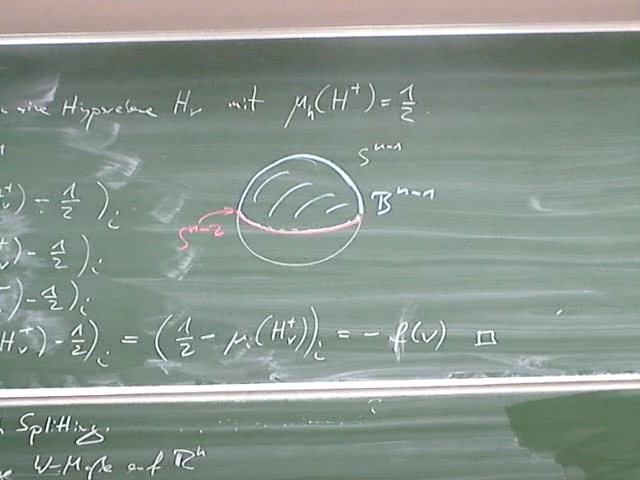 eine Hyperebene H_v mit μ_n(H^+) = 1/2.
S^{n-1}
B^{n-1}
S^{n-2}
) - 1/2 )_i
) - 1/2 )_i
) - 1/2 )_i
H_v^+) - 1/2 )_i = ( 1/2 - μ_i(H_v^+) )_i = - f(v) □
Splitting.
W-Maße auf ℝ^n